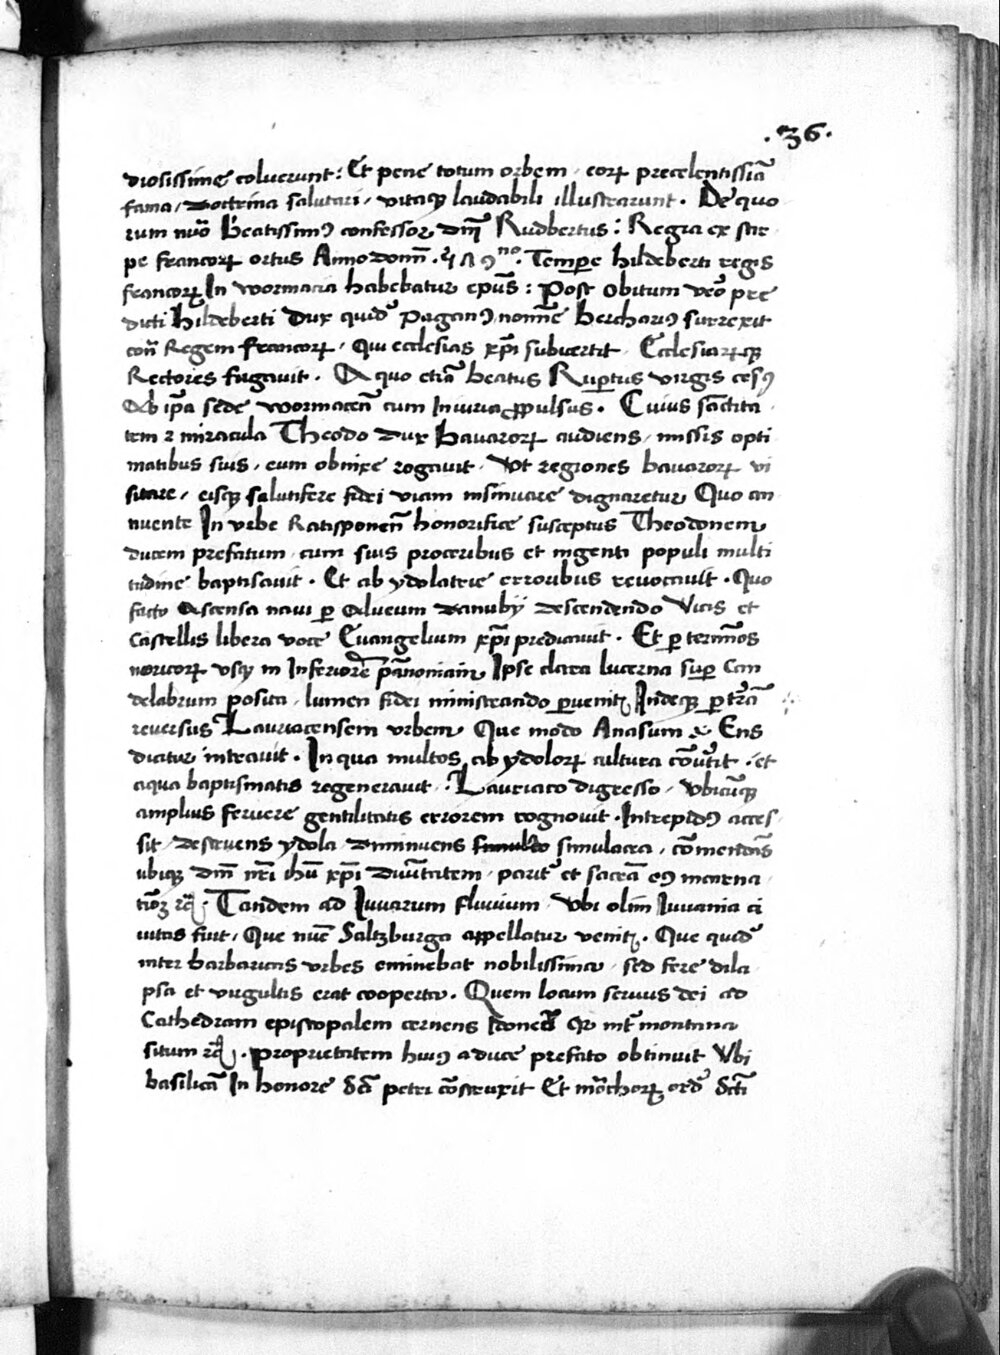 .36.
diosissime coluerunt: Et pene totum orbem, eorꝝ precelentissiā
fama, doctrina salutari, vitaqꝫ laudabili illustrarunt. De quo
rum nūo Beatissimꝰ confessor dn̄i Rudbertus: Regia ex stir
pe francorꝝ ortus Anno domī. Tempore hildeberti regis
francorꝝ In wormacia habebatur ep̄us: Post obitum vēo pre
dicti hildeberti Dux quidā paganꝰ, nomīe Bercharꝰ surrexit
con̄ Regem francorꝝ, Qui ecclesias xp̄i subuertit, Ecclesiarꝝqꝫ
Rectores fugauit. A quo etiā beatus Rup̱tus virgis cesꝰ
Ab ip̄a sede wormacen̄ cum Iniuria ꝓpulsus. Cuius sāctita
tem ⁊ miracula Theodo Dux Bauarorꝝ audiens, missis opti
matibus suis, eum obnixe rogauit, Vt regiones bauarorꝝ vi
sitare, eisqꝫ salutifere fidei viam insinuare dignaretur Quo an
nuente In vrbe Ratisponen̄ honorifice susceptus Theodonem
ducem prefatum, cum suis proceribus et ingenti populi multi
tudine baptisauit. Et ab ydolatrie erroribus reuocauit. Quo
facto Ascensa naui ꝑ Alueum danubÿ descendendo Vicis et
Castellis libera voce Euangelium xp̄i predicauit. Et ꝑ termīos
noricorꝝ vsqꝫ in Inferiorē pānoniam, Ipse clara lucerna suꝑ Can
delabrum posita, lumen fidei ministrando ꝑuenit, Indeqꝫ ꝑ tr̄ā
reuersus Lauriacensem vrbem, Que modo Anasum Ens
dicitur intrauit. In qua multos ab ydolorꝝ cultura cōu̾tit. et
aqua baptismatis regenerauit. Lauriaco digresso, vbicūqꝫ
amplius feruere gentilitatis errorem cognouit. Intrepidꝰ acces
sit, destruens ydola, diminuens simulacra, cōmendās
ubiqꝫ dn̄i nr̄i ihū xp̄i diuītatem, parit̾ et sacrā eiꝰ incarna
Tandem ad Iuuarum fluuium, vbi olim Iuuania ci
uitas fuit, Que nūc Saltzburga appellatur venit. Que quidē
inter barbaricas vrbes eminebat nobilissima, sed fere dila
psa et virgultis erat cooperta. Quem locum seruus dei ad
Cathedram episcopalem cernens Idoneū Qꝛ int̾ montana
situm. proprietatem huiꝰ a duce prefato obtinuit Vbi
basilicā In honore Sc̄i petri cōstruxit Et mōchorꝝ ordī